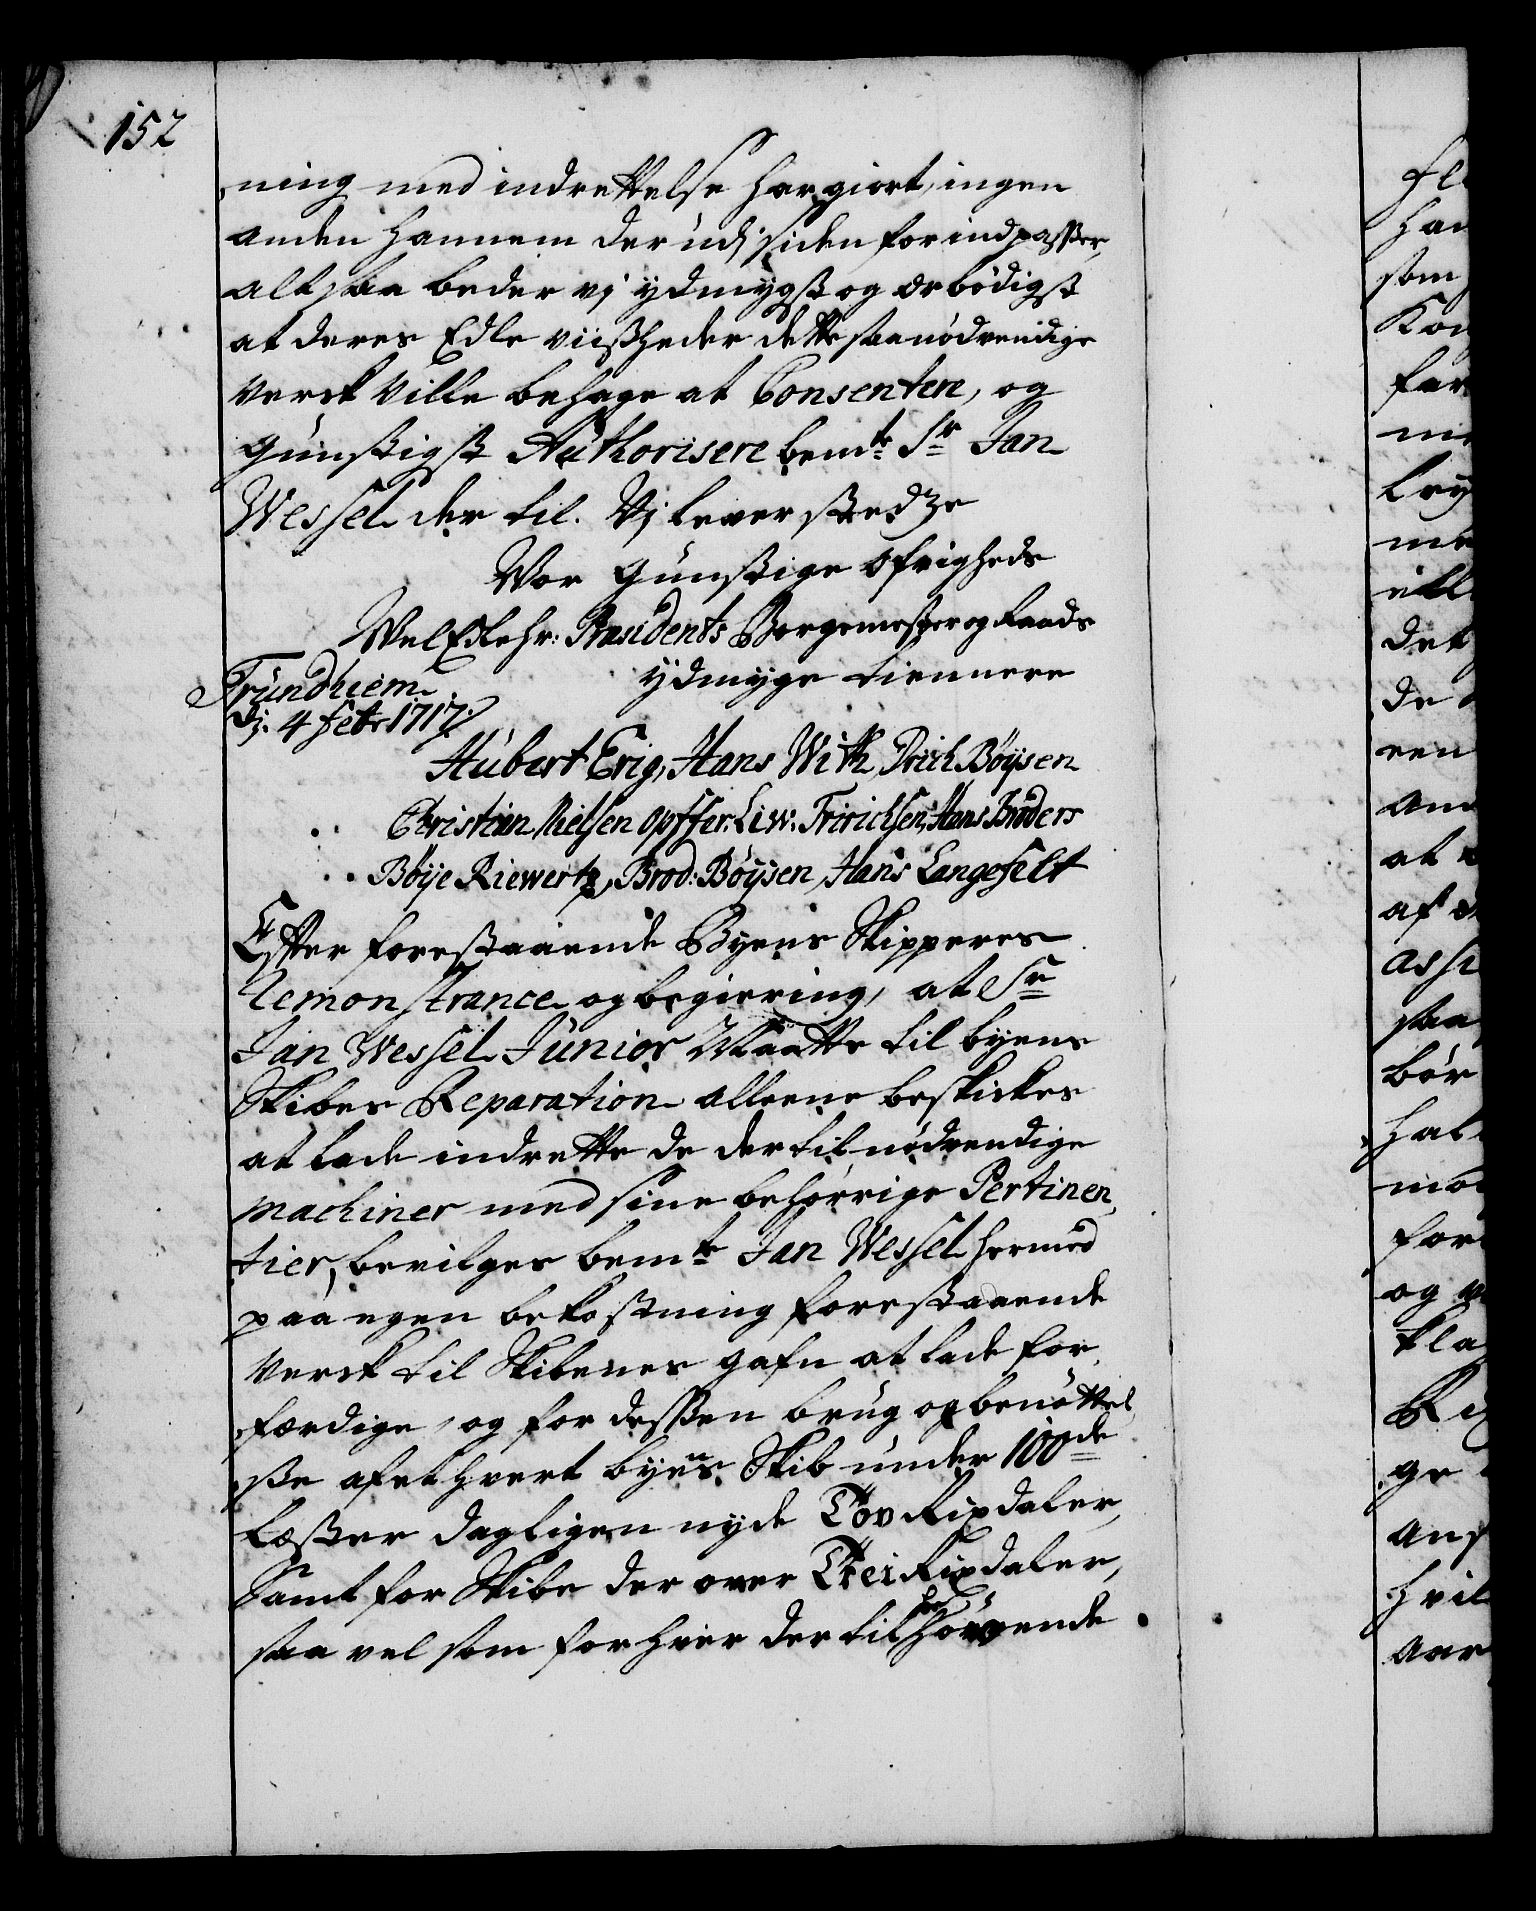 152
ning med indrettelse har giort, ingen
anden hannem der udj siden forindpasser,
alt saa beder vj ydmygst og ærbødigst
at deres Edle viisheder dette saa nødvendige
verck ville behage at Consentere, og
gunstigst Authorisere bemte Sr Jan
Wessel der til. Vj lever stedze
Vor gunstige Øfrigheds
WelEdlehr: Præsidents Borgemester og Raads
ydmyge tiennere
Trundhiem
dj: 4 febr 1717.
Hubert Erig, Hans With, Drich Bøysen
Christian Nielsen Opffer: Liw: Fririchsen, Hans Broders
Bøye Riewertz, Brod: Bøysen, Hans Langefelt
Efter forestaaende Byens Skipperes
Remonstrance og begiering, at Sr
Jan Wessel Junior Maatte til byens
Skibes Reparation alleene beskickes
at lade indrette de der til nødvendige
machiner med sine behørrige Pertinen,
tier, bevilges bemte Jan Wessel hermed
paa egen bekostning forestaaende
verck til Skibenes gafn at lade for,
færdige, og for dessen brug og benøttel,
sse af et hvert byens Skib under 100de
læster dagligen nyde Tov Rixdaler,
Samt for Skibe der over Trei Rixdaler,
saa vel som for hver der til hørende